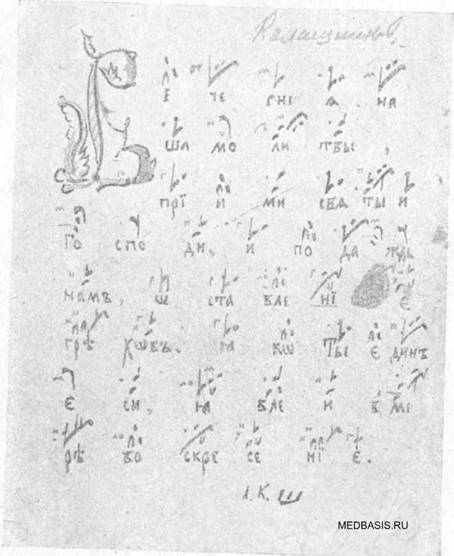 Калашниковъ.
В е че рні ѧ на
ша мо ли твы ,
прі и ми свѧ ты и
го спо ди , и по да ждь
намъ , ѡ ста вле ні є
грѣ хѡвъ . ꙗ кѡ ты є динъ
є сы , ꙗ вле и в мі
рѣ во скре се ні є .
Л. К. Ш
MEDBASIS.RU